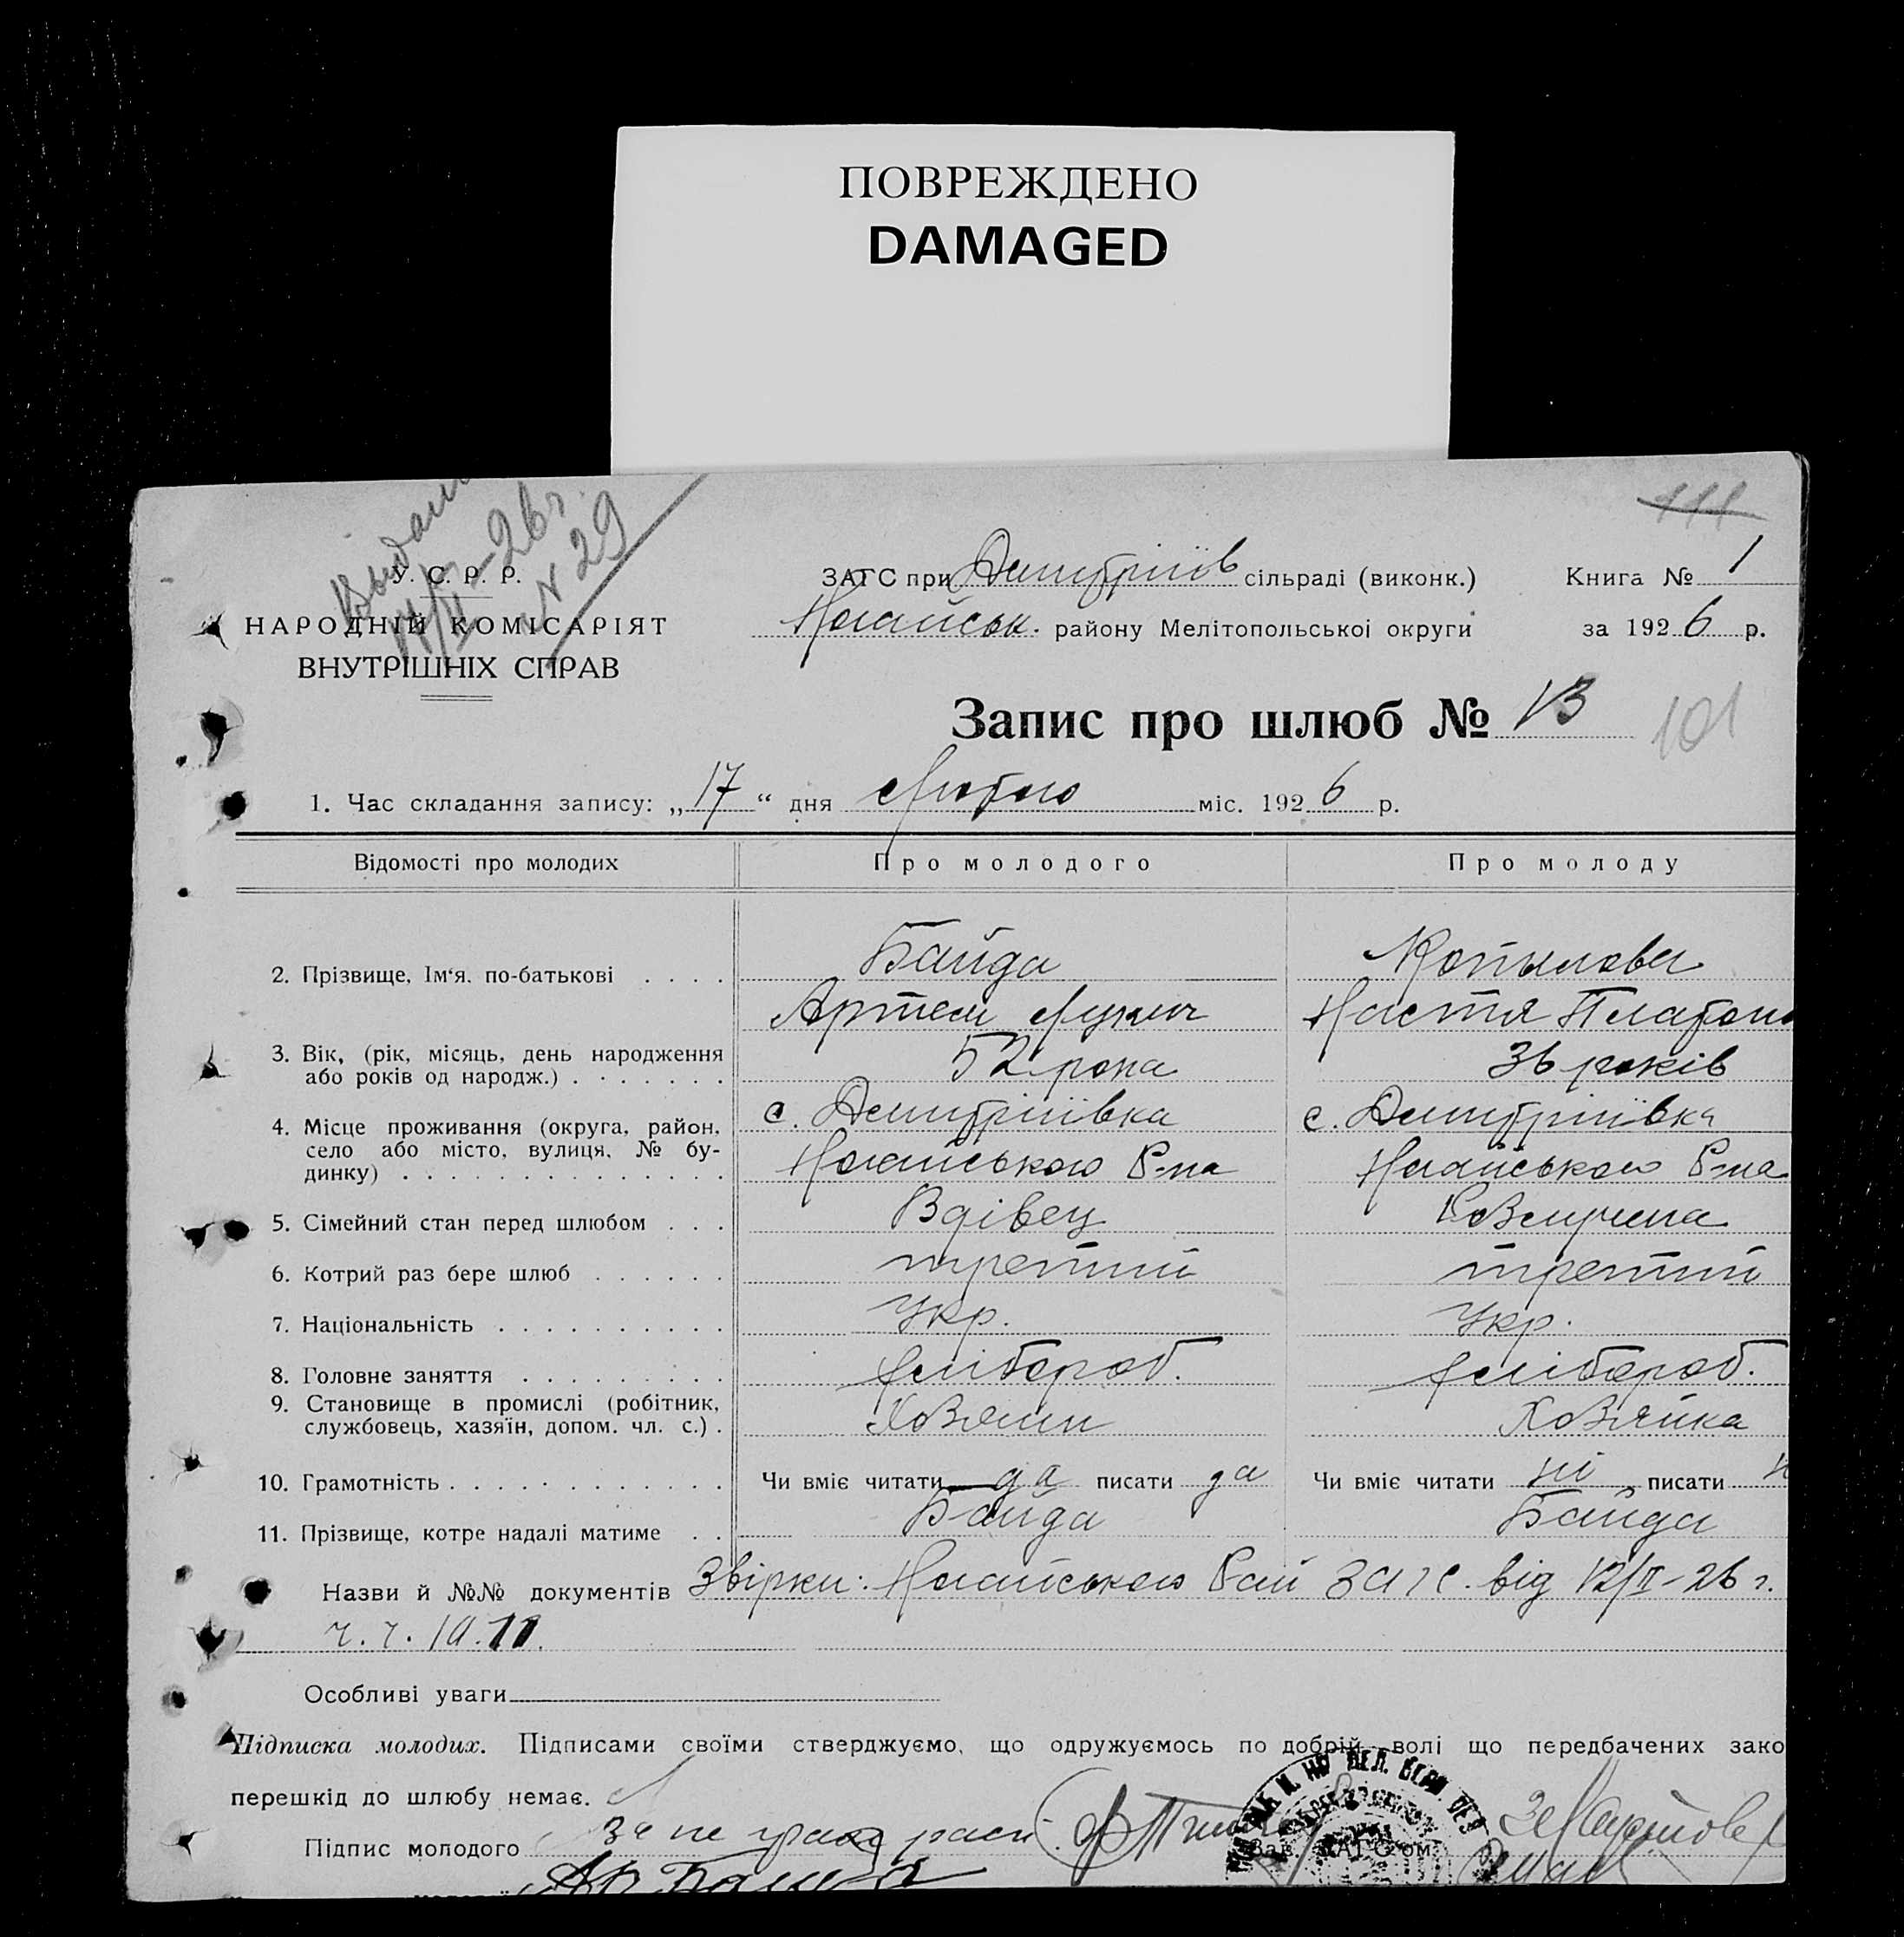 ПОВРЕЖДЕНО
DAMAGED
111
Выдан
11/II-26 г.
N 29
У. С. Р. Р.
НАРОДНІЙ КОМІСАРІЯТ
ВНУТРІШНІХ СПРАВ
ЗАГС при Дмитріїв сільраді (виконк.) Книга № 1
Ногайськ. району Мелітопольської округи за 1926 р.
Запис про шлюб № 13
101
1. Час складання запису: „17“ дня Лютого міс. 1926 р.
Відомості про молодих Про молодого Про молоду
2. Прізвище, Ім‘я. по-батькові . . . . Байда Копилова
Артем Лукич Настя Платон
3. Вік, (рік, місяць, день народження
або років од народж.) . . . . . . . 52 рока 36 років
4. Місце проживання (округа, район, с. Дмитріївка с. Дмитріївка
село або місто, вулиця, № бу-
динку) . . . . . . . . . . . . . . Ногайського Р-на Ногайського Р-на
5. Сімейний стан перед шлюбом . . . Вдівець Розлучена
6. Котрий раз бере шлюб . . . . . . третий третий
7. Національність . . . . . . . . . . Укр. Укр.
8. Головне заняття . . . . . . . . . хлібороб. хлібороб.
9. Становище в промислі (робітник,
службовець, хазяїн, допом. чл. с.) . Хозяин Хозяйка
10. Грамотність . . . . . . . . . . . . Чи вміє читати да писати да Чи вміє читати ні писати н
11. Прізвище, котре надалі матиме . . Байда Байда
Назви й №№ документів Звірки: Ногайського Рай ЗАГС. від 12/II-26 г.
ч. ч. 10. 11.
Особливі уваги
Підписка молодих. Підписами своїми стверджуємо, що одружуємось по добрій волі що передбачених зако
перешкід до шлюбу немає.
Підпис молодого За не грам расп.
Зав. ЗАГС'ом